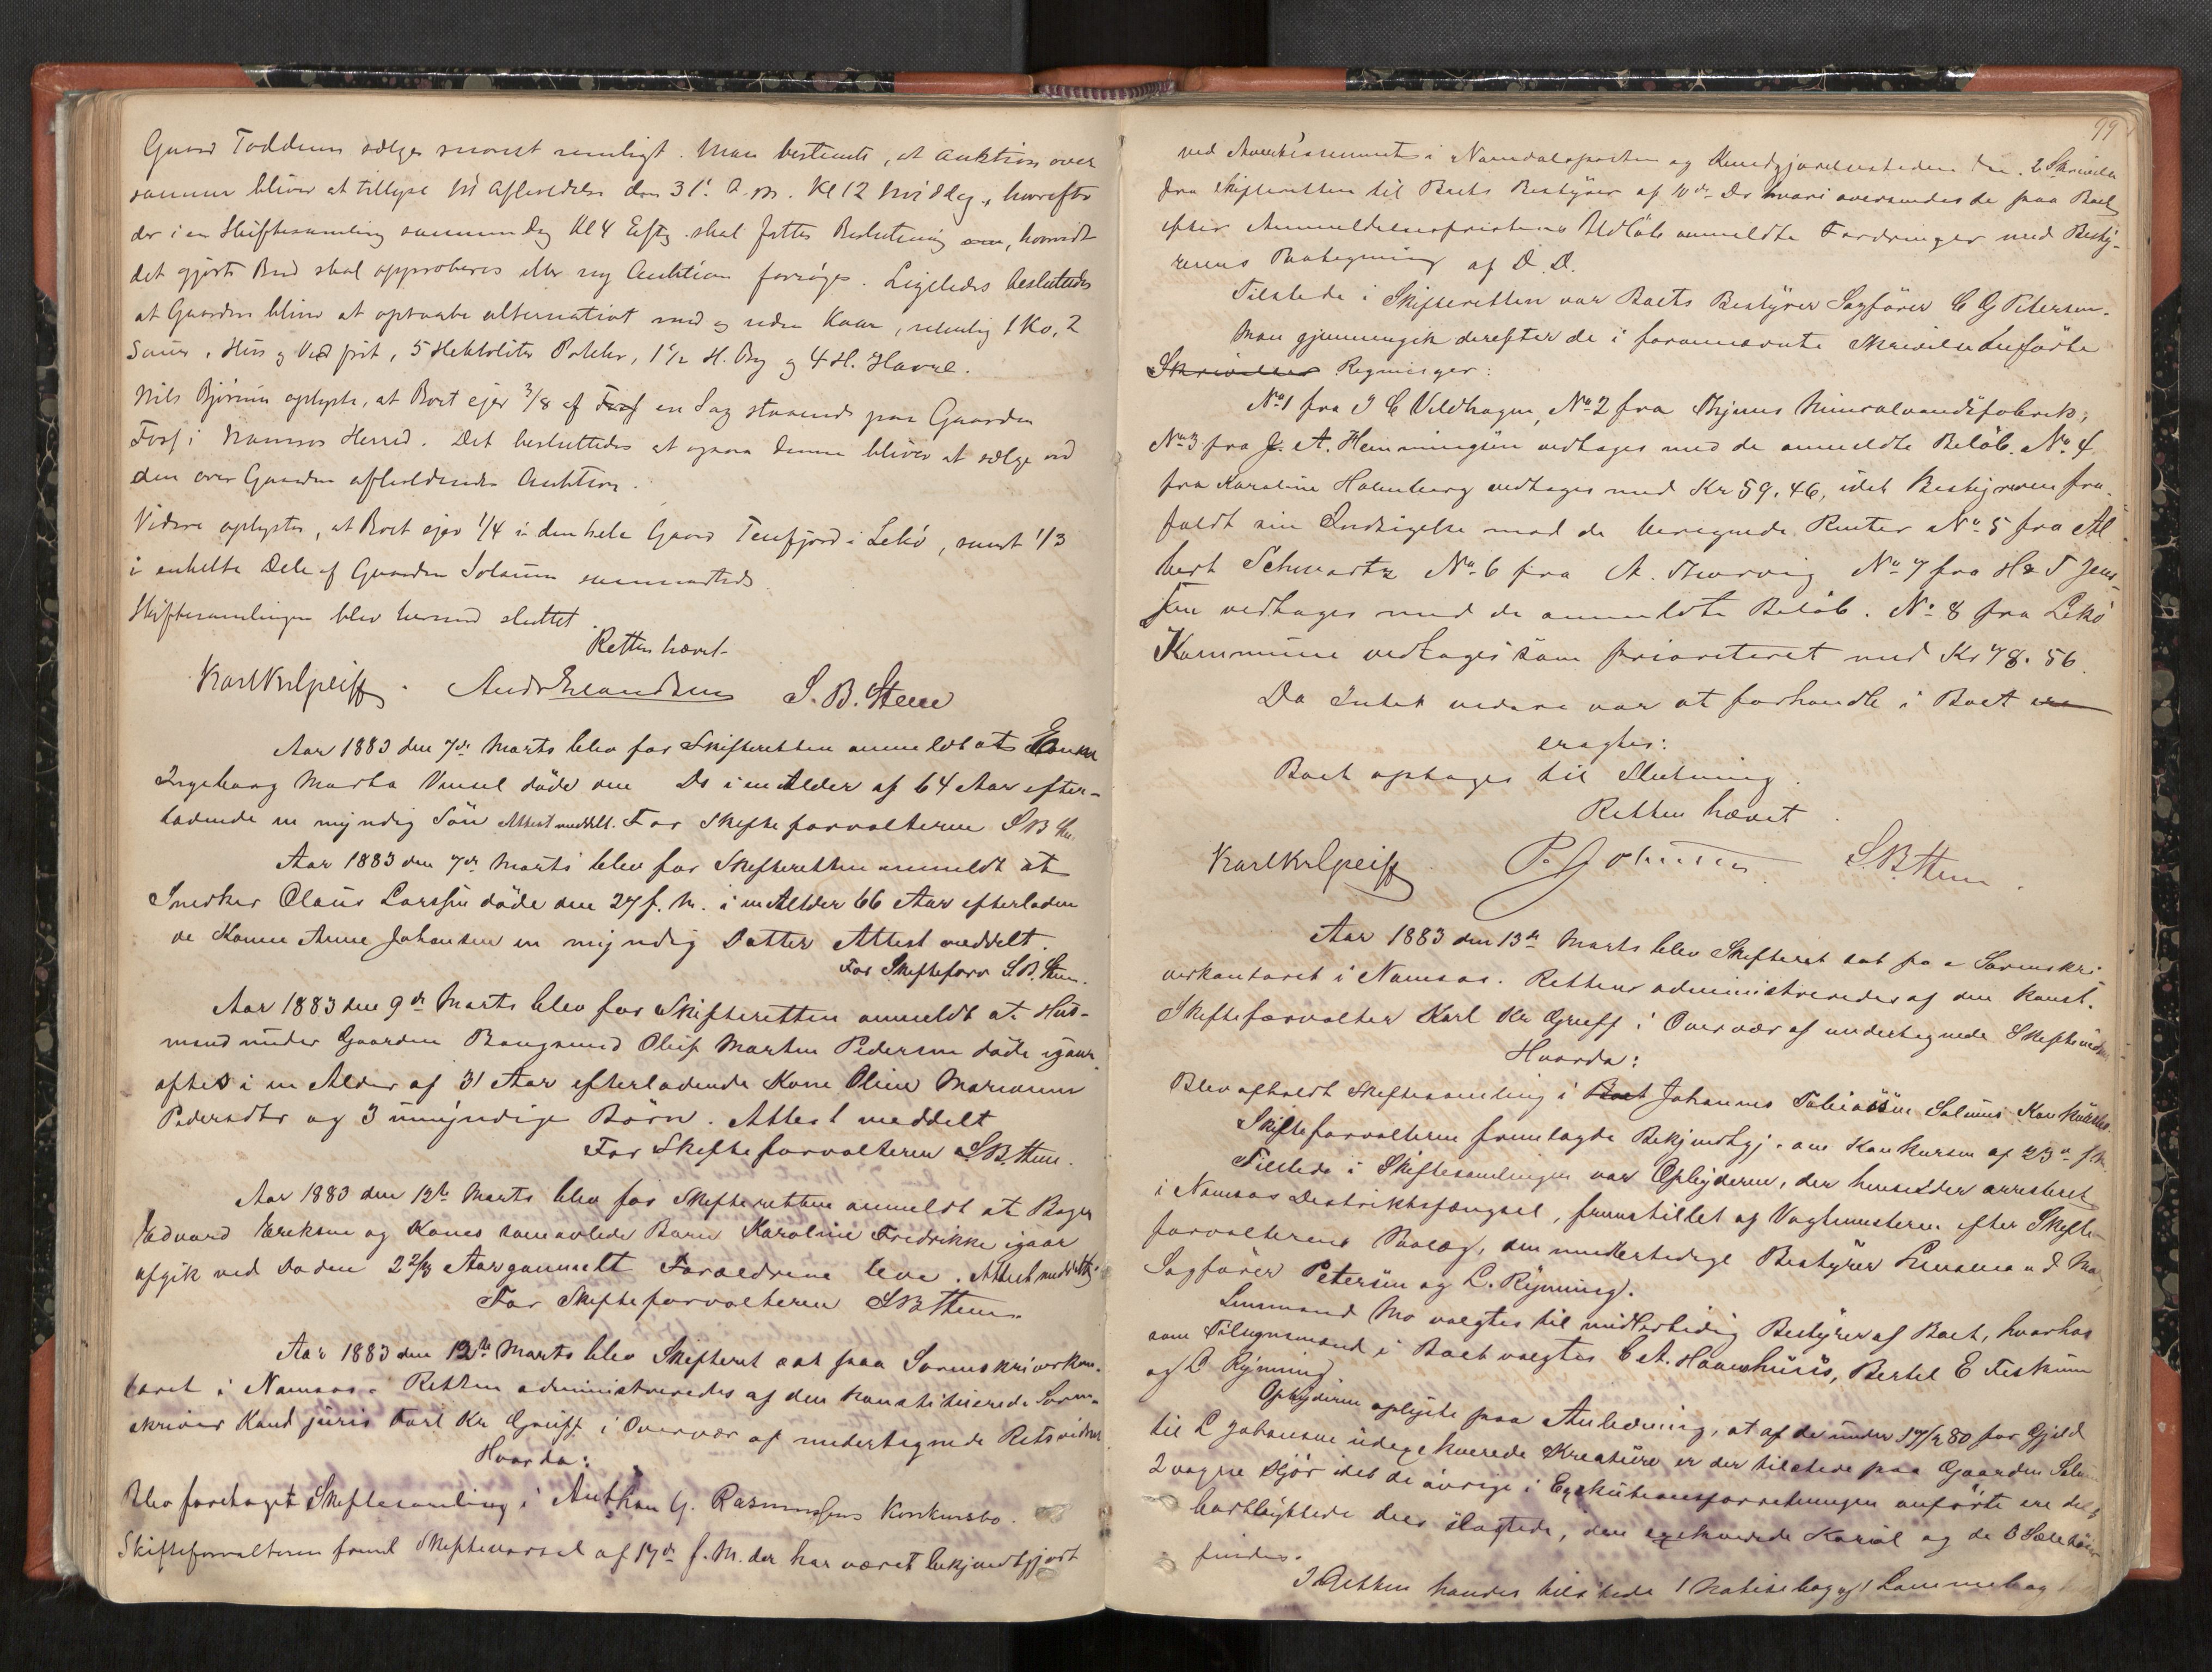 Gaard Toddum sælges snarest muligt. Man bestemte, at Auktion over
samme bliver at tillyse til Afholdelse den 31. d. M. Kl 12 Middag, hvorefter
der i en Skiftesamling samme Dag Kl 4 Efty. skal fattes Beslutning om, hvorvidt
det gjorte Bud skal approberes eller ny Auktion forsøges. Ligeledes besluttedes
at Gaarden bliver at opraabe alternativt med og uden Kaar, nemlig 1 Ko, 2
Sauer, Hus og Ved frit, 5 Hektoliter Poteter, 1 1/2 H. Byg og 4 H. Havre.
Nils Bjørum oplyste, at Boet ejer 3/8 af Fosf en Sag staaende paa Gaarden
Fosf i Namsos Herred. Det besluttedes at ogsaa denne bliver at sælge ved
den over Gaarden afholdendes Auktion.
Videre oplystes, at Boet ejer 1/4 i den hele Gaard Tenfjord i Lekø, samt 1/3
i enkelte Dele af Gaarden Solsum sammesteds
Skiftesamlingen blev hermed sluttet.
Retten hævet
Karl Kr Greiff. Andr Erlandsen S. B. Stene
Aar 1883 den 7de Marts blev for Skifteretten anmeldt at Enke
Ingeborg Marta Vensel døde den Ds i en Alder af 64 Aar efter-
ladende en myndig Søn Attest meddelt. For Skifteforvalteren S B Stene
Aar 1883 den 7de Marts blev for Skifteretten anmeldt at
Snedker Claus Larssen døde den 27 f. M. i en Alder 66 Aar efterladen
de Konen Anne Johansen en myndig Datter Attest meddelt.
For Skifteforv S. B. Stene.
Aar 1883 den 9de Marts blev for Skifteretten anmeldt at Hus-
mand under Gaarden Bangsund Oluf Martin Pedersen døde igaar
aftes i en Alder af 31 Aar efterladende Kone Oline Marianne
Pedersdtr og 3 umyndige Børn. Attest meddelt
For Skifteforvalteren S. B. Stene.
Aar 1883 den 12te Marts blev for Skifteretten anmeldt at Bager
Edvard Eriksen og Kones samavlede Barn Karoline Fredrikke igaar
afgik ved Døden 2 2/3 Aar gammelt Forældrene leve. Attest meddelt
For Skifteforvalteren S B Stene.
Aar 1883 den 12te Marts blev Skifteret sat paa Sorenskriverkon-
toret i Namsos. Retten administreredes af den konstituerede Soren-
skriver Kand juris Karl Kr Greiff i Overvær af undertegnede Retsvidner
Hvorda:
Blev foretaget Skiftesamling i Anthon G. Rasmussens Konkursbo.
Skifteforvalteren freml Skiftevarsel af 17de f. M. der har været bekjendtgjort
99
ved Avertissement i Namdalsposten og Kundgjørelsestidenden. 2 Skrivelser
fra Skifteretten til Boets Bestyrer af 10de Ds hvori oversendes de paa Boet
efter Anmeldelsesfristens Udløb anmeldte Fordringer med Besty-
rerens Paategning af D. D.
Tilstede i Skifteretten var Boets Bestyrer Sagfører C G Petersen.
Man gjennemgik derefter de i forannævnte Skrivelse anførte
Skrivelser Regninger:
No 1 fra J C Veldhagen, No 2 fra Thjems Mineralvandsfabrik,
No 3 fra J. A. Hemmingsen vedtages med de anmeldte Beløb. No 4
fra Karoline Holmberg vedtages med Kr 59,46, idet Bestyreren fra-
faldt sin Indsigelse mod de beregnede Renter No 5 fra Al
bert Schwartz No 6 fra A. Thorvig No 7 fra H & T Jens-
sen vedtages med de anmeldte Beløb. No 8 fra Lekø
Kommune vedtages som prioriteret med Kr 78.56
Da Intet videre var at forhandle i Boet ere
eragtes:
Boet optages til Slutning.
Retten hævet.
Karl Kr Greiff P. Johnsen S. B. Stene.
Aar 1883 den 13de Marts blev Skifteret sat paa Sorenskri
verkontoret i Namsos. Retten administreredes af den konst.
Skifteforvalter Karl Kr Greiff i Overvær af undertegnede Skiftevidner
Hvorda:
Blev afholdt Skiftesamling i Boet Johannes Tobiassen Salums Konkursbo.
Skifteforvalteren fremlagde Bekjendtgj. om Konkursen af 23de f. M.
Tilstede i Skiftesamlingen var Opbyderen, der hensidder arresteret
i Namsos Distriktsfængsel, fremstillet af Vagtmesteren efter Skifte-
forvalterens Paalæg, den midlertidige Bestyrer Lensmand Mo,
Sagfører Petersen og L. Rynning.
Lensmand Mo valgtes til midlertidig Bestyrer af Boet, hvorhos
som Tilsynsmænd i Boet valgtes C A. Haavehuus, Bertel E Fiskum
og L Rynning
Opbyderen oplyste paa Anledning, at af de under 17/2 80 for Gjæld
til L Johansen udexekverede Kreature er der tilstede paa Gaarden Salum
2 voxne Kjør idet de øvrige i Exekutionsforretningen anførte ere dels
bortbyttede dels slagtede, den exekverede Kariol og de 3 Sølvskeer
findes.
I Retten havdes tilstede 1 Notitsbog og 1 Lommebog